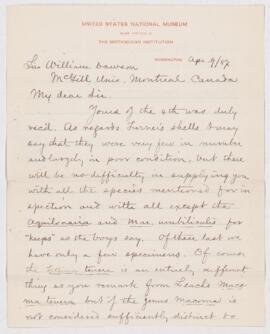 UNITED STATES NATIONAL MUSEUM
UNDER DIRECTION OF
THE SMITHSONIAN INSTITUTION
WASHINGTON Apr 9/87
Sir William Dawson
McGill Univ. Montreal Canada
My dear Sir
Yours of the 4th was duly
recd. As regards Turner's shells I may
say that they were very few in number
and largely in poor condition, but there
will be no difficulty in supplying you
with all the species mentioned for in
spection and with all except the
Aquilonaria and Mac. umbilicalis for
"keeps" as the boys say. Of these last we
have only a few specimens. Of course
the Tellina tenera is an entirely different
thing as you remark from Leach's Maco
ma tenera but if the genus Macoma is
not considered sufficiently distinct to